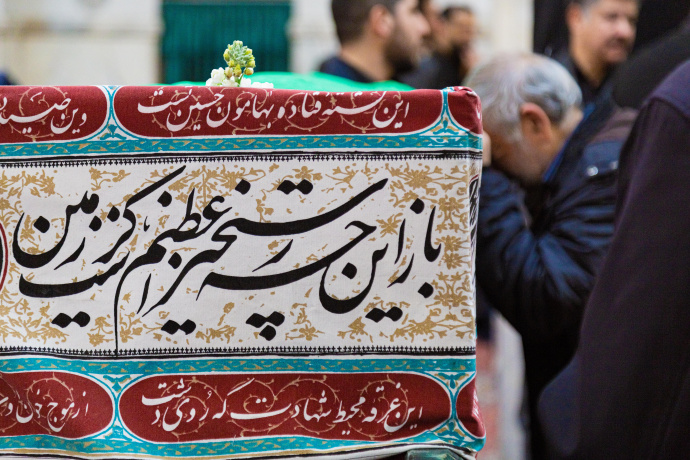 این کشته فتاده بهامون حسین تست وین صید
باز این چه رستخیز عظیم است کز زمین
این غرقه محیط شهادت که روی دشت از موج خون